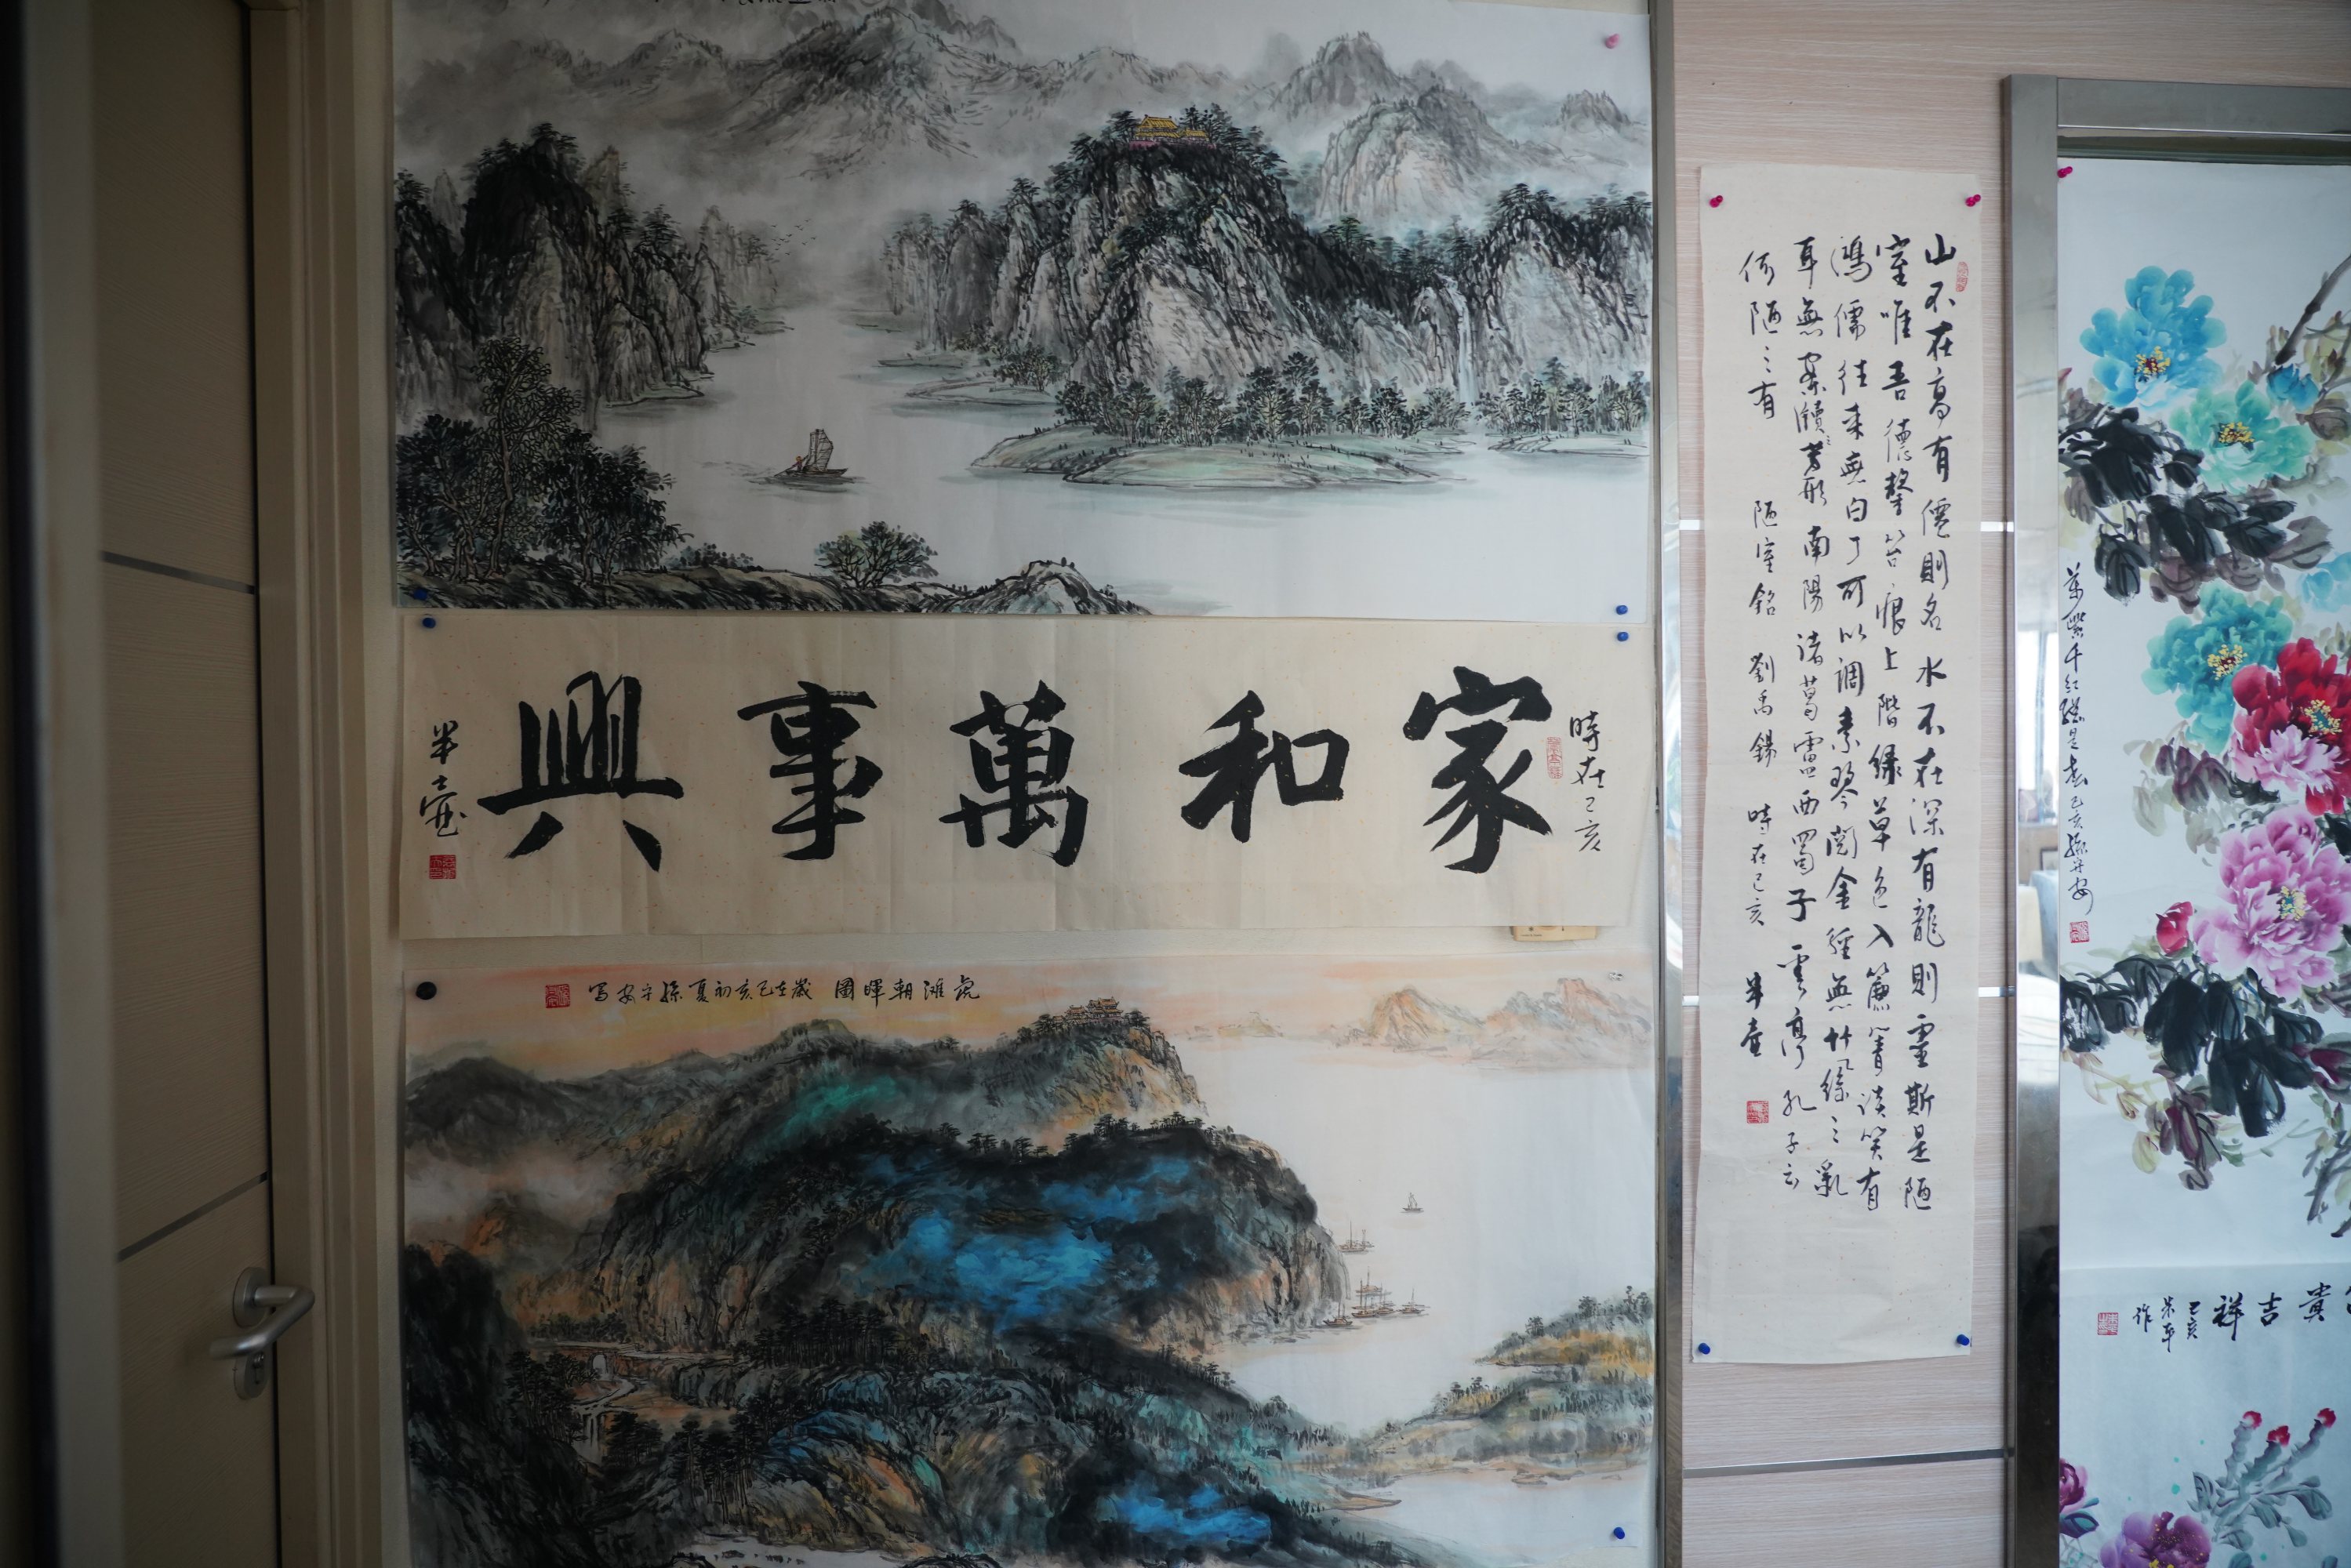 時在己亥
家和萬事興
半壺
虎滩朝暉圖 歲在己亥初夏孫守安写
山不在高有僊則名水不在深有龍則靈斯是陋
室唯吾德馨苔痕上階緑草色入簾青談笑有
鴻儒往来無白丁可以調素琴閲金經無竹絲之亂
耳無案牘之勞形南陽諸葛廬西蜀子雲亭孔子云
何陋之有 陋室銘 劉禹錫 時在己亥 半壺
萬紫千红總是春己亥孫守安
貴吉祥
己亥
作